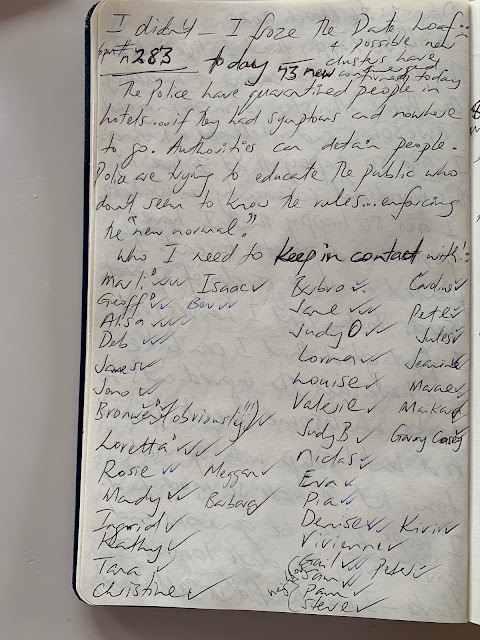 I didn't — I froze the Date Loaf...
6pm #n 283 today 43 new confirmed today
& possible new clusters have
The Police have quarantined people in
hotels...if they had symptoms and nowhere
to go. Authorities can detain people.
Police are trying to educate the public who
don't seem to know the rules...enforcing
the "new normal."
Who I need to keep in contact with:
Marli Isaac Barbro
Geoff Ben Jane Peter
Alisa Judy O Jules
Deb Lorna Jeannie
James Louise
Jono Valerie
Bronwen (obviously!!!) Judy B Garry Casey
Loretta Niclas
Rosie Meggan Eva
Mandy Barbara Pia
Ingrid Denise Kivin
Kathy Vivienne
Tara Gail Peter
Christine Sam
Pam
Steve